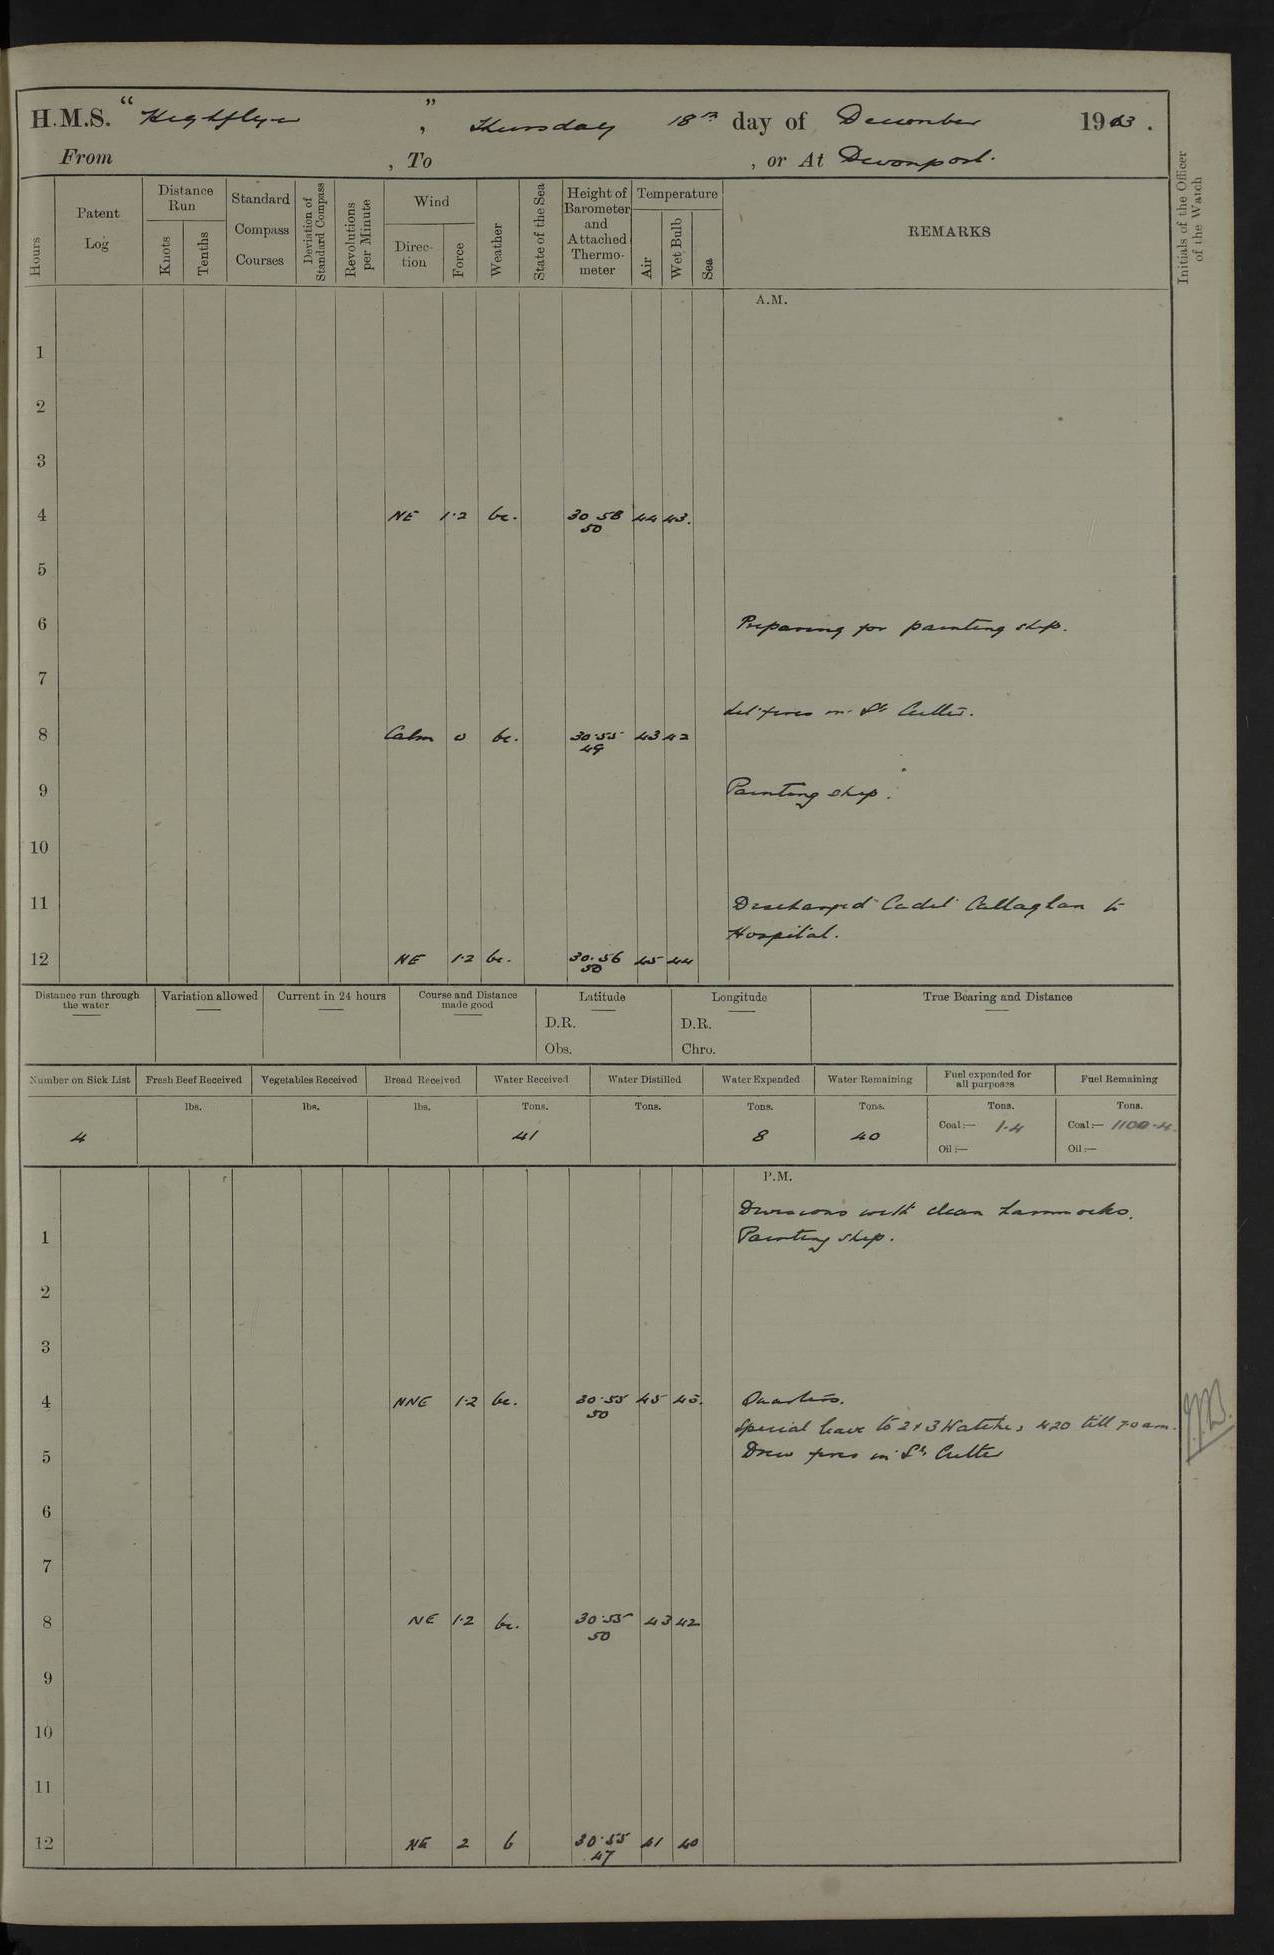 H.M.S. "Highflyer", Thursday 18th day of December 1913.
From , To , or At Devonport.
Hours
Patent Log
Distance Run
Knots
Tenths
Standard Compass Courses
Deviation of Standard Compass
Revolutions per Minute
Wind
Direction
Force
Weather
State of the Sea
Height of Barometer and Attached Thermometer
Temperature
Air
Wet Bulb
Sea
REMARKS
Initials of the Officer of the Watch
A.M.
1
2
3
4 NE 1·2 bc. 30·58 44 43.
50
5
6 Preparing for painting ship.
7
Lit fires in St. Cutter.
8 Calm 0 bc. 30·55 43 42
49
9 Painting ship.
10
11 Discharged Cadet Callaghan to
Hospital.
12 NE 1·2 bc. 30·56 45 44
50
Distance run through the water
Variation allowed
Current in 24 hours
Course and Distance made good
Latitude
D.R.
Obs.
Longitude
D.R.
Chro.
True Bearing and Distance
Number on Sick List
4
Fresh Beef Received
lbs.
Vegetables Received
lbs.
Bread Received
lbs.
Water Received
Tons.
41
Water Distilled
Tons.
Water Expended
Tons.
8
Water Remaining
Tons.
40
Fuel expended for all purposes
Tons.
Coal:— 1·4
Oil:—
Fuel Remaining
Tons.
Coal:— 1100·4
Oil:—
P.M.
Divisions with clean hammocks.
1 Painting ship.
2
3
4 NNE 1·2 bc. 30·55 45 43. Quarters.
50
Special leave to 2 & 3 Watches 4.20 till 7.0 am.
5 Drew fires in St. Cutter
6
7
8 NE 1·2 bc. 30·55 43 42
50
9
10
11
12 NE 2 b 30·55 41 40
47